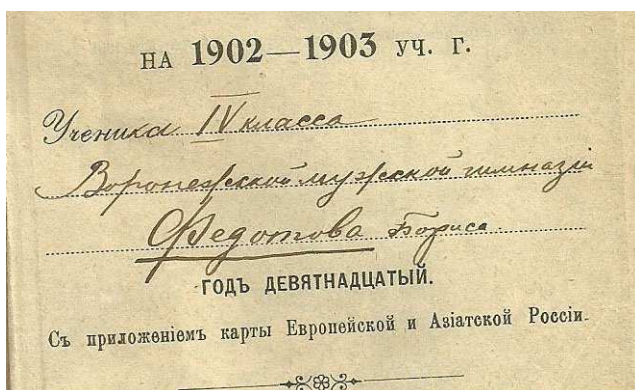 НА 1902—1903 УЧ. Г.
Ученика IV класса
Воронежской мужской гимназіи
Федотова Бориса.
ГОДЪ ДЕВЯТНАДЦАТЫЙ.
Съ приложеніемъ карты Европейской и Азіатской Россіи.